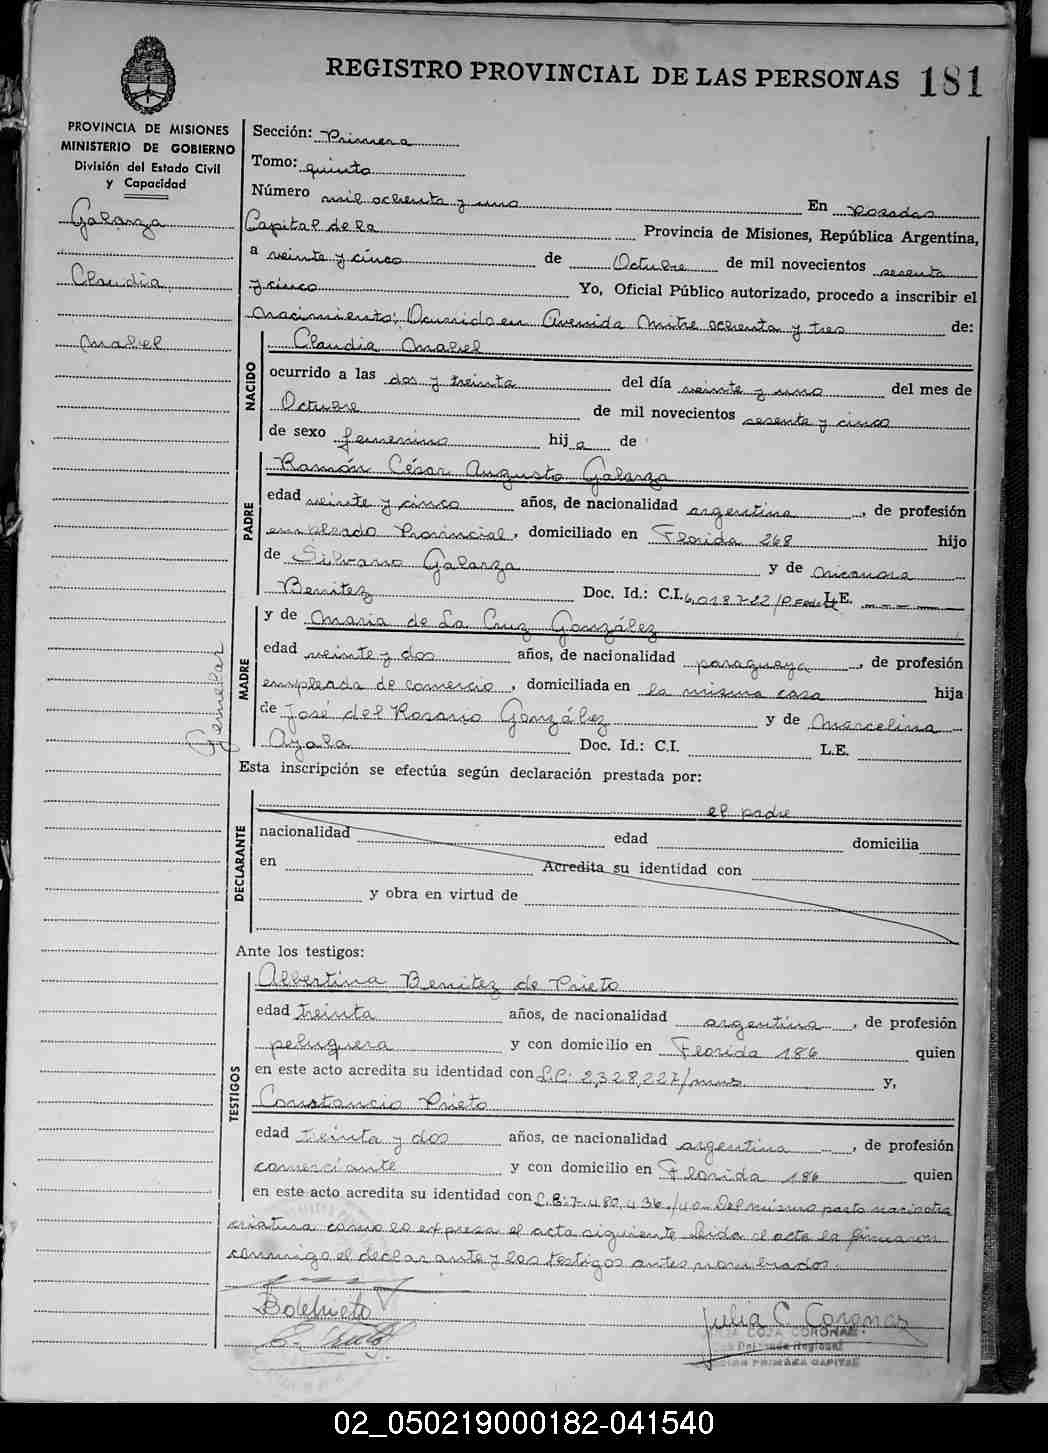 REGISTRO PROVINCIAL DE LAS PERSONAS 181
PROVINCIA DE MISIONES
MINISTERIO DE GOBIERNO
División del Estado Civil
y Capacidad
Galarza
Claudia
Mabel
Gemelar
Sección: Primera
Tomo: quinto
Número mil ochenta y uno En Posadas
Capital de la Provincia de Misiones, República Argentina,
a veinte y cinco de Octubre de mil novecientos sesenta
y cinco Yo, Oficial Público autorizado, procedo a inscribir el
nacimiento: Ocurrido en Avenida Mitre ochenta y tres de:
NACIDO
Claudia Mabel
ocurrido a las dos y treinta del día veinte y uno del mes de
Octubre de mil novecientos sesenta y cinco
de sexo femenino hija de
PADRE
Ramón César Augusto Galarza
edad veinte y cinco años, de nacionalidad argentina, de profesión
empleado Provincial, domiciliado en Florida 268 hijo
de Silvano Galarza y de Nicanora
Benitez Doc. Id.: C.I. 6,018722/P.Federal L.E.
MADRE
y de María de La Cruz González
edad veinte y dos años, de nacionalidad paraguaya, de profesión
empleada de comercio, domiciliada en la misma casa hija
de José del Rosario González y de Marcelina
Ayala Doc. Id.: C.I. L.E.
Esta inscripción se efectúa según declaración prestada por:
DECLARANTE
el padre
nacionalidad edad domicilia
en Acredita su identidad con
y obra en virtud de
Ante los testigos:
TESTIGOS
Albertina Benitez de Prieto
edad treinta años, de nacionalidad argentina, de profesión
peluquera y con domicilio en Florida 186 quien
en este acto acredita su identidad con L.C: 2,328,227/mns. y,
Constancio Prieto
edad treinta y dos años, de nacionalidad argentina, de profesión
comerciante y con domicilio en Florida 186 quien
en este acto acredita su identidad con L.E: 7.480,436./40- Del mismo parto nació otra
criatura como lo expresa el acta siguiente Leida el acta la firmaron
conmigo el declarante y los testigos antes nombrados.
Julia C. Coronas
JULIA COZA CORONAS
Regional
PRIMERA CAPITAL
02_050219000182-041540